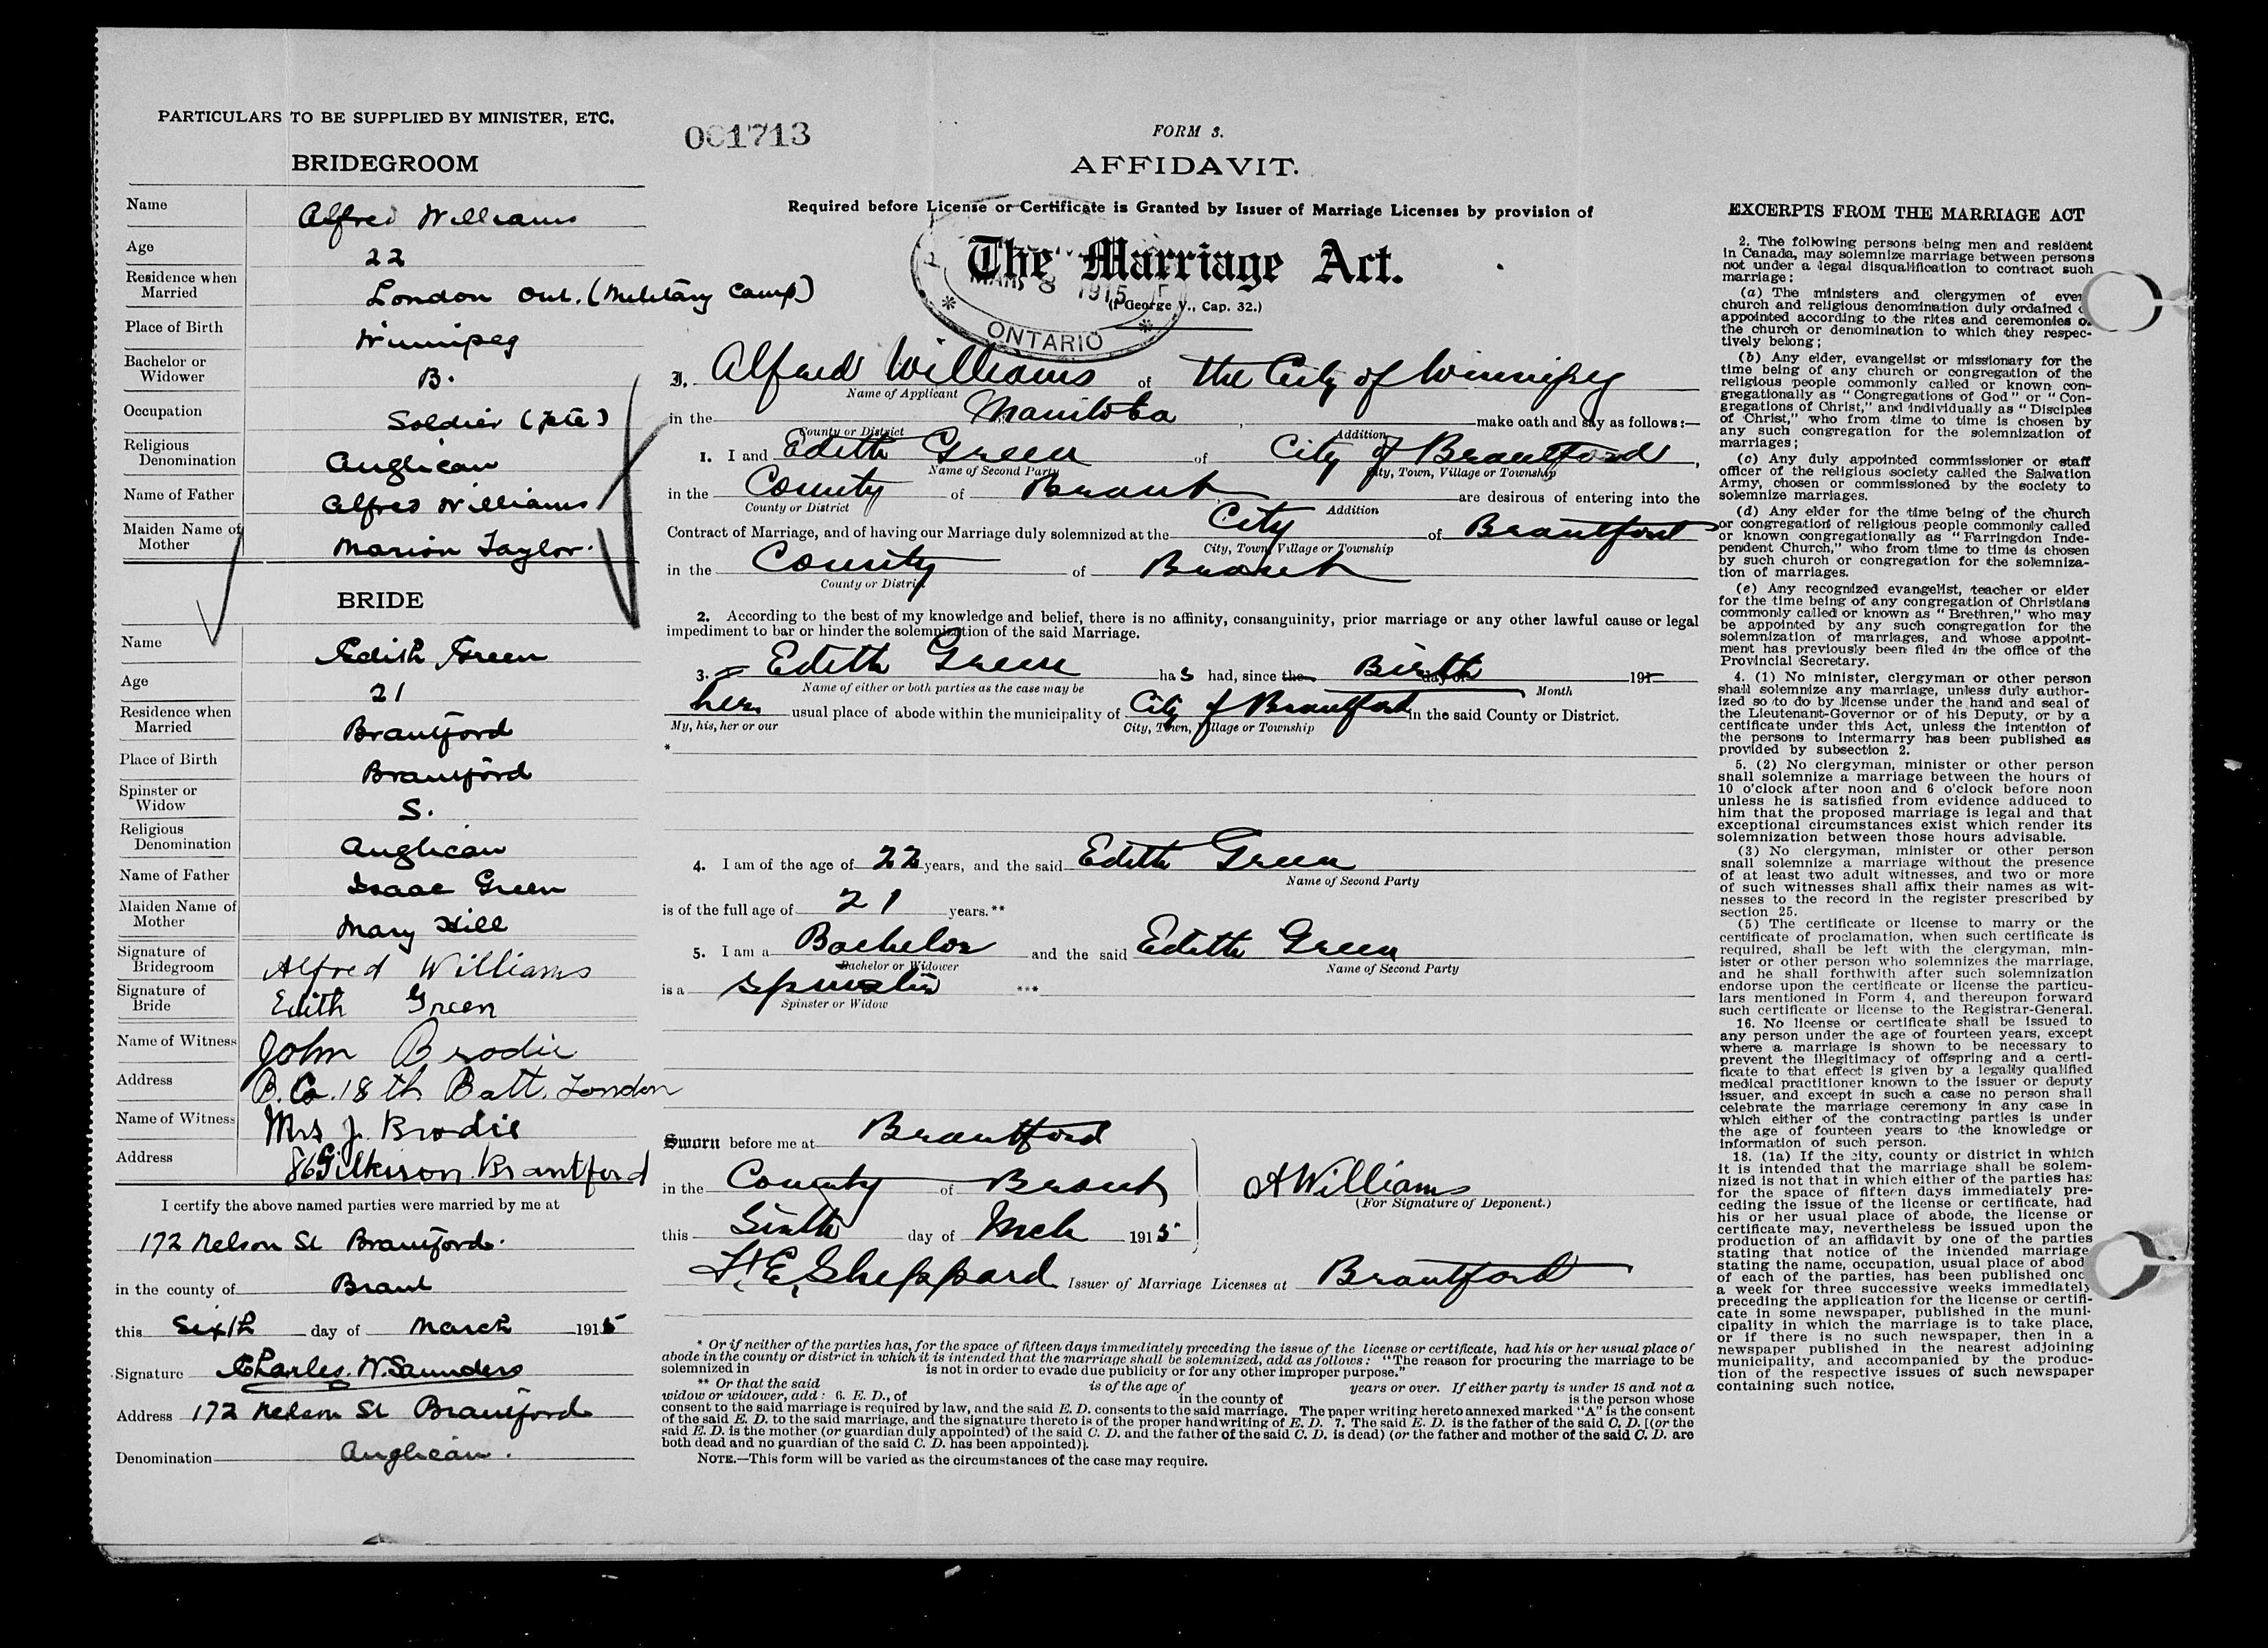 PARTICULARS TO BE SUPPLIED BY MINISTER, ETC.
BRIDEGROOM
Name Alfred Williams
Age 22
Residence when Married London Ont. (Military Camp)
Place of Birth Winnipeg
Bachelor or Widower B.
Occupation Soldier (pte)
Religious Denomination Anglican
Name of Father Alfred Williams
Maiden Name of Mother Marion Taylor.
BRIDE
Name Edith Green
Age 21
Residence when Married Brantford
Place of Birth Brantford
Spinster or Widow S.
Religious Denomination Anglican
Name of Father Isaac Green
Maiden Name of Mother Mary Hill
Signature of Bridegroom Alfred Williams
Signature of Bride Edith Green
Name of Witness John Brodie
Address B. Co. 18th Batt. London
Name of Witness Mrs J. Brodie
Address 86 Gilkison Brantford
I certify the above named parties were married by me at
172 Nelson St Brantford.
in the county of Brant
this Sixth day of March 1915
Signature Charles. W. Saunders
Address 172 Nelson St Brantford
Denomination Anglican.
001713
FORM 3.
AFFIDAVIT.
Required before License or Certificate is Granted by Issuer of Marriage Licenses by provision of
The Marriage Act.
MAR 8 1915
(1 George V., Cap. 32.)
ONTARIO
I, Alfred Williams of the City of Winnipeg
Name of Applicant
in the Manitoba, make oath and say as follows:—
County or District Addition
1. I and Edith Green of City of Brantford,
Name of Second Party City, Town, Village or Township
in the County of Brant are desirous of entering into the
County or District Addition
Contract of Marriage, and of having our Marriage duly solemnized at the City of Brantford
City, Town, Village or Township
in the County of Brant
County or District
2. According to the best of my knowledge and belief, there is no affinity, consanguinity, prior marriage or any other lawful cause or legal
impediment to bar or hinder the solemnization of the said Marriage.
3. Edith Green has had, since the Birth day of 191
Name of either or both parties as the case may be Month
her usual place of abode within the municipality of City of Brantford in the said County or District.
My, his, her or our City, Town, Village or Township
*
4. I am of the age of 22 years, and the said Edith Green
Name of Second Party
is of the full age of 21 years.**
5. I am a Bachelor and the said Edith Green
Bachelor or Widower Name of Second Party
is a Spinster ***
Spinster or Widow
Sworn before me at Brantford
in the County of Brant
this Sixth day of Mch 1915
A Williams
(For Signature of Deponent.)
Sheppard Issuer of Marriage Licenses at Brantford
* Or if neither of the parties has, for the space of fifteen days immediately preceding the issue of the license or certificate, had his or her usual place of
abode in the county or district in which it is intended that the marriage shall be solemnized, add as follows: "The reason for procuring the marriage to be
solemnized in is not in order to evade due publicity or for any other improper purpose."
** Or that the said is of the age of years or over. If either party is under 18 and not a
widow or widower, add: 6. E. D., of in the county of is the person whose
consent to the said marriage is required by law, and the said E. D. consents to the said marriage. The paper writing hereto annexed marked "A" is the consent
of the said E. D. to the said marriage, and the signature thereto is of the proper handwriting of E. D. 7. The said E. D. is the father of the said C. D. [(or the
said E. D. is the mother (or guardian duly appointed) of the said C. D. and the father of the said C. D. is dead) (or the father and mother of the said C. D. are
both dead and no guardian of the said C. D. has been appointed)].
NOTE.—This form will be varied as the circumstances of the case may require.
EXCERPTS FROM THE MARRIAGE ACT
2. The following persons being men and resident
in Canada, may solemnize marriage between persons
not under a legal disqualification to contract such
marriage:
(a) The ministers and clergymen of every
church and religious denomination duly ordained
appointed according to the rites and ceremonies of
the church or denomination to which they respec-
tively belong;
(b) Any elder, evangelist or missionary for the
time being of any church or congregation of the
religious people commonly called or known con-
gregationally as "Congregations of God" or "Con-
gregations of Christ," and individually as "Disciples
of Christ," who from time to time is chosen by
any such congregation for the solemnization of
marriages;
(c) Any duly appointed commissioner or staff
officer of the religious society called the Salvation
Army, chosen or commissioned by the society to
solemnize marriages.
(d) Any elder for the time being of the church
or congregation of religious people commonly called
or known congregationally as "Farringdon Inde-
pendent Church," who from time to time is chosen
by such church or congregation for the solemniza-
tion of marriages.
(e) Any recognized evangelist, teacher or elder
for the time being of any congregation of Christians
commonly called or known as "Brethren," who may
be appointed by any such congregation for the
solemnization of marriages, and whose appoint-
ment has previously been filed in the office of the
Provincial Secretary.
4. (1) No minister, clergyman or other person
shall solemnize any marriage, unless duly author-
ized so to do by license under the hand and seal of
the Lieutenant-Governor or of his Deputy, or by a
certificate under this Act, unless the intention of
the persons to intermarry has been published as
provided by subsection 2.
5. (2) No clergyman, minister or other person
shall solemnize a marriage between the hours of
10 o'clock after noon and 6 o'clock before noon
unless he is satisfied from evidence adduced to
him that the proposed marriage is legal and that
exceptional circumstances exist which render its
solemnization between those hours advisable.
(3) No clergyman, minister or other person
shall solemnize a marriage without the presence
of at least two adult witnesses, and two or more
of such witnesses shall affix their names as wit-
nesses to the record in the register prescribed by
section 25.
(5) The certificate or license to marry or the
certificate of proclamation, when such certificate is
required, shall be left with the clergyman, min-
ister or other person who solemnizes the marriage,
and he shall forthwith after such solemnization
endorse upon the certificate or license the particu-
lars mentioned in Form 4, and thereupon forward
such certificate or license to the Registrar-General.
16. No license or certificate shall be issued to
any person under the age of fourteen years, except
where a marriage is shown to be necessary to
prevent the illegitimacy of offspring and a certi-
ficate to that effect is given by a legally qualified
medical practitioner known to the issuer or deputy
issuer, and except in such a case no person shall
celebrate the marriage ceremony in any case in
which either of the contracting parties is under
the age of fourteen years to the knowledge or
information of such person.
18. (1a) If the city, county or district in which
it is intended that the marriage shall be solem-
nized is not that in which either of the parties has
for the space of fifteen days immediately pre-
ceding the issue of the license or certificate, had
his or her usual place of abode, the license or
certificate may, nevertheless be issued upon the
production of an affidavit by one of the parties
stating that notice of the intended marriage
stating the name, occupation, usual place of abod
of each of the parties, has been published onc
a week for three successive weeks immediately
preceding the application for the license or certifi-
cate in some newspaper, published in the muni-
cipality in which the marriage is to take place,
or if there is no such newspaper, then in a
newspaper published in the nearest adjoining
municipality, and accompanied by the produc-
tion of the respective issues of such newspaper
containing such notice.